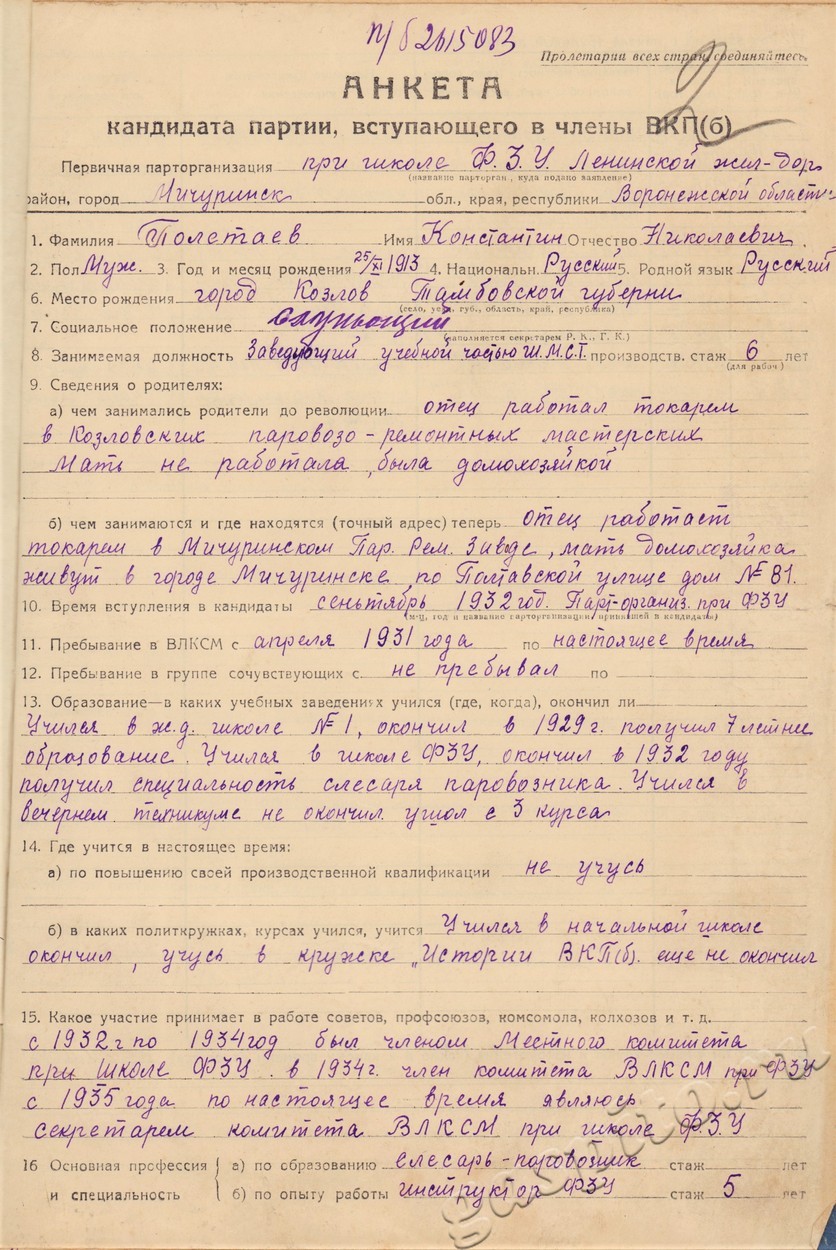 п/б 2615083
Пролетарии всех стран, соединяйтесь.
2
АНКЕТА
кандидата партии, вступающего в члены ВКП(б)
Первичная парторганизация при школе Ф.З.У. Ленинской жел-дор.
(название парторган., куда подано заявление)
район, город Мичуринск обл., края, республики Воронежской области
1. Фамилия Полетаев Имя Константин Отчество Николаевич.
2. Пол Муж. 3. Год и месяц рождения 25/XI 1913 4. Национальн. Русский 5. Родной язык Русский
6. Место рождения город Козлов Тамбовской губерни
(село, уезд, губ., область, край, республика)
7. Социальное положение служащий
(заполняется секретарем Р. К., Г. К.)
8. Занимаемая должность Заведующий учебной частью Ш.М.С.Т. производств. стаж 6 лет
(для рабоч)
9. Сведения о родителях:
а) чем занимались родители до революции отец работал токарем
в Козловских паровозо-ремонтных мастерских
Мать не работала, была домохозяйкой
б) чем занимаются и где находятся (точный адрес) теперь отец работает
токарем в Мичуринском Пар. Рем. Заводе, мать домохозяйка
живут в городе Мичуринске, по Полтавской улице дом № 81.
10. Время вступления в кандидаты сеньтябрь 1932 год. Парт-организ. при ФЗУ
(м-ц, год и название парторганизации, принявшей в кандидаты)
11. Пребывание в ВЛКСМ с апреля 1931 года по настоящее время
12. Пребывание в группе сочувствующих с. не пребывал по
13. Образование—в каких учебных заведениях учился (где, когда), окончил ли
Учился в ж.д. школе № 1, окончил в 1929 г. получил 7 летнее
образование. Учился в школе ФЗУ, окончил в 1932 году
получил специальность слесаря паровозника. Учился в
вечернем техникуме не окончил ушол с 3 курса
14. Где учится в настоящее время:
а) по повышению своей производственной квалификации не учусь
б) в каких политкружках, курсах учился, учится Учился в начальной школе
окончил, учусь в кружке „Истории ВКП(б). еще не окончил
15. Какое участие принимает в работе советов, профсоюзов, комсомола, колхозов и т. д.
с 1932 г по 1934 год был членом Местного комитета
при школе ФЗУ. в 1934 г. член комитета ВЛКСМ при ФЗУ
с 1935 года по настоящее время являюсь
секретарем комитета ВЛКСМ при школе Ф.З.У
16 Основная профессия а) по образованию слесарь-паровозник стаж лет
и специальность б) по опыту работы инструктор ФЗУ стаж 5 лет